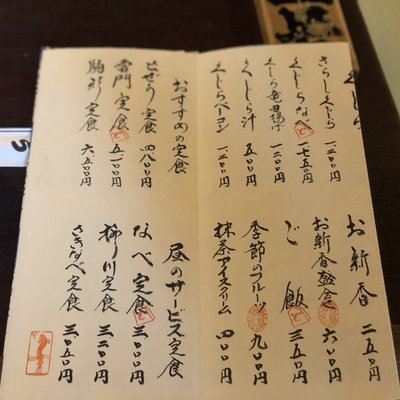 くじら
さらしくじら 一、二〇〇円
くじらなべ 一、七五〇円
くじら竜田揚げ 一、二〇〇円
くじら汁 〇〇円
くじらベーコン 一、二〇〇円
お新香 二五〇円
お新香盛合 六〇〇円
ご飯 三五〇円
季節のフルーツ 九〇〇円
抹茶アイスクリーム 四〇〇円
おすすめの定食
どぜう定食 四、八〇〇円
雷門定食 五、一〇〇円
駒形定食 六、五〇〇円
昼のサービス定食
なべ定食 三、〇〇〇円
柳川定食 三、二〇〇円
さきなべ定食 三、〇五〇円